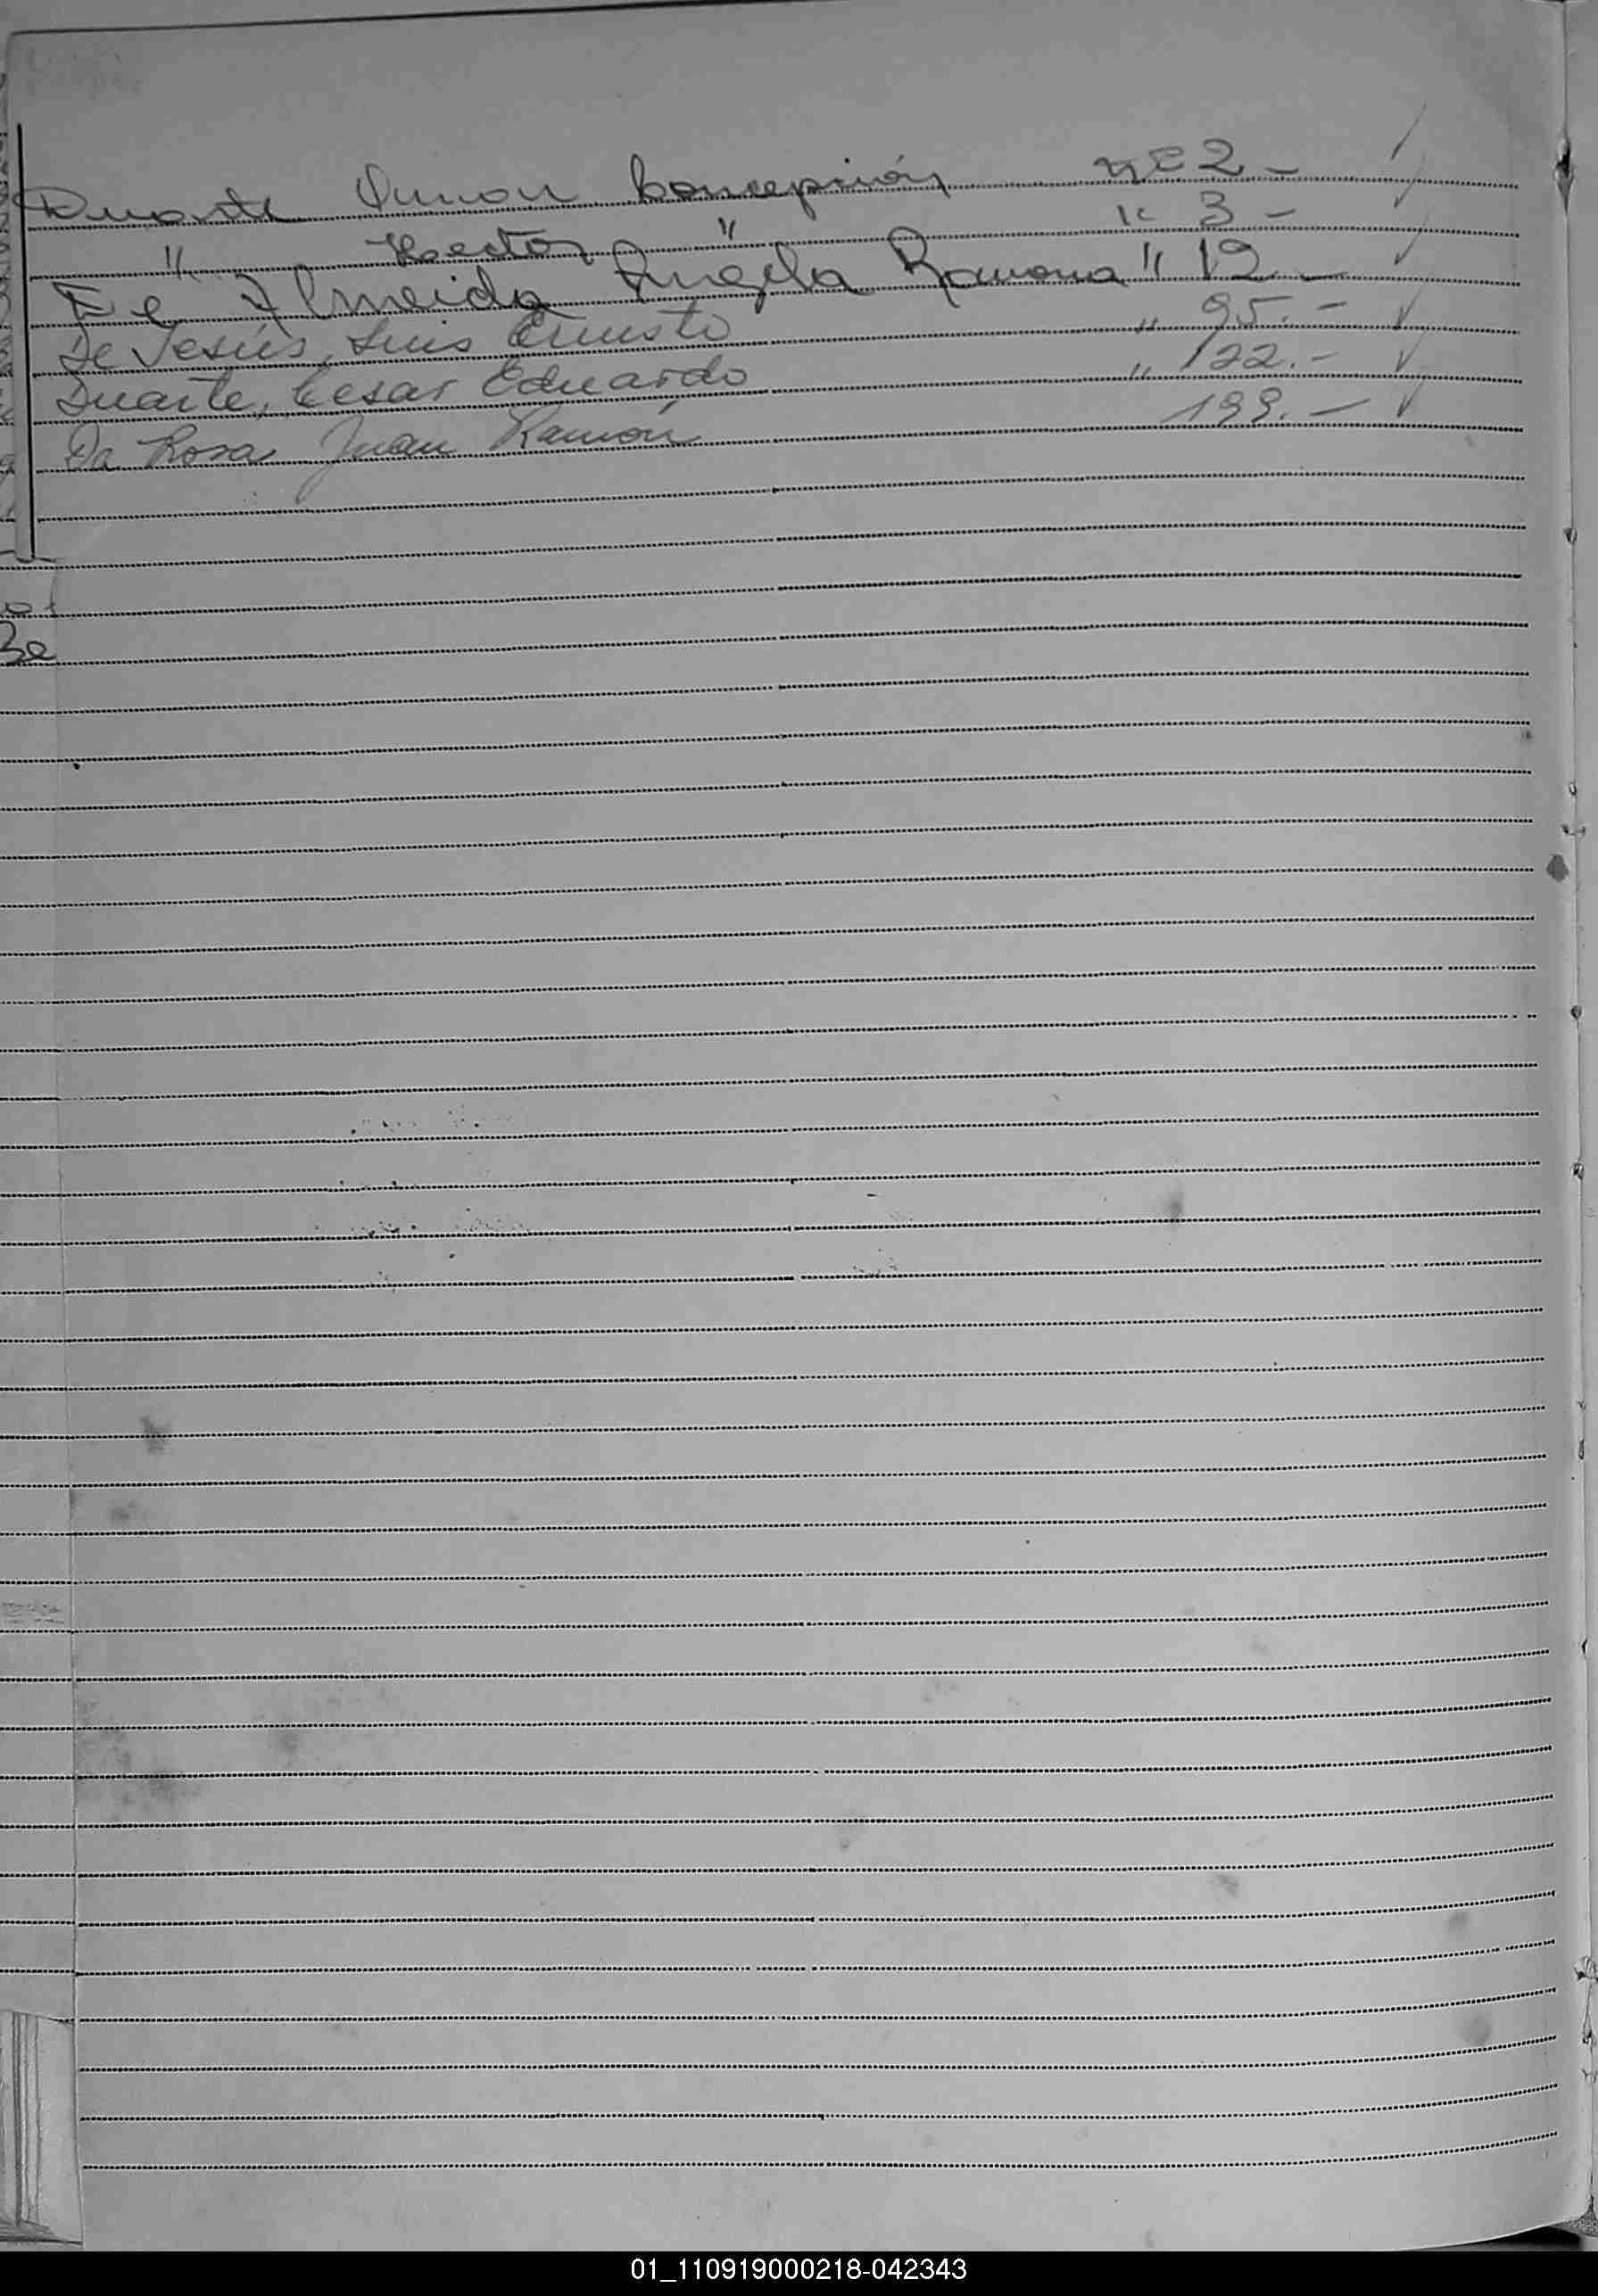 Duarte Ramon Concepción nº 2 -
" Hector " " 3 -
De Almeida Angela Ramona " 19 -
De Jesús, Luis Ernesto " 95.-
Duarte, Cesar Eduardo " 122.-
Da Rosa, Juan Ramón 199.-
Be
01_110919000218-042343